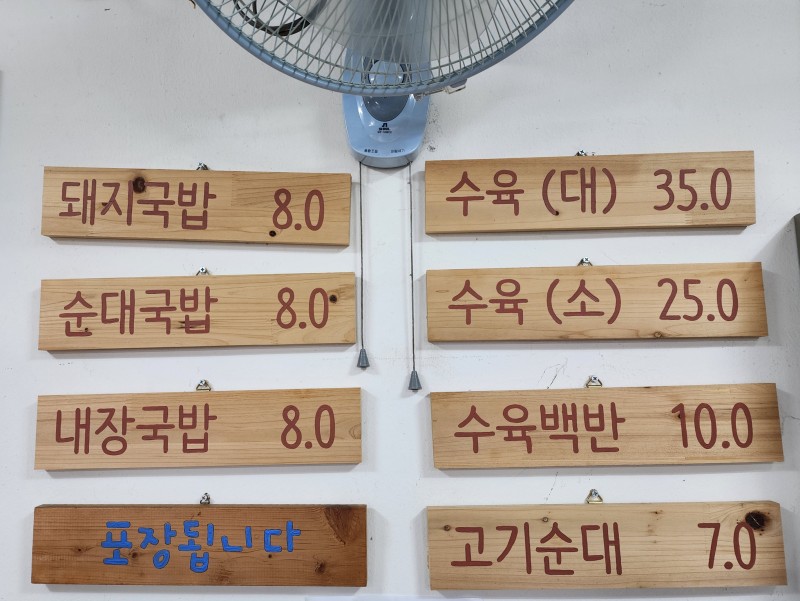 돼지국밥 8.0
순대국밥 8.0
내장국밥 8.0
포장됩니다
수육 (대) 35.0
수육 (소) 25.0
수육백반 10.0
고기순대 7.0